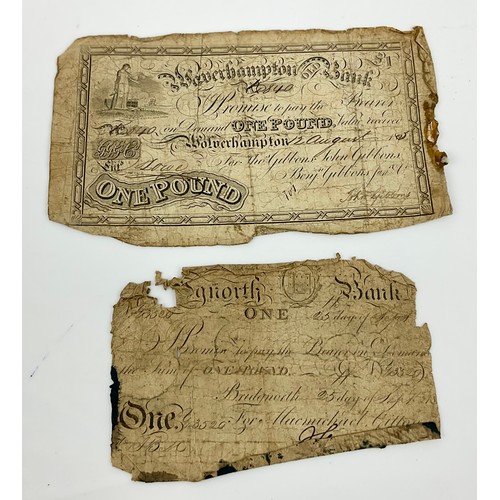 Wolverhampton Bank £1
No 840
Promise to pay the Bearer
No 840 on Demand ONE POUND Value received
Wolverhampton 12 August
For Thos Gibbons, John Gibbons,
Benjn Gibbons
ONE POUND
gnorth Bank
No 3520 ONE 25 day of
Promise to pay the Bearer on Demand
the Sum of ONE POUND. No 3520
Bridgnorth 25 day of Sept
One. No 3520 For Macmichael